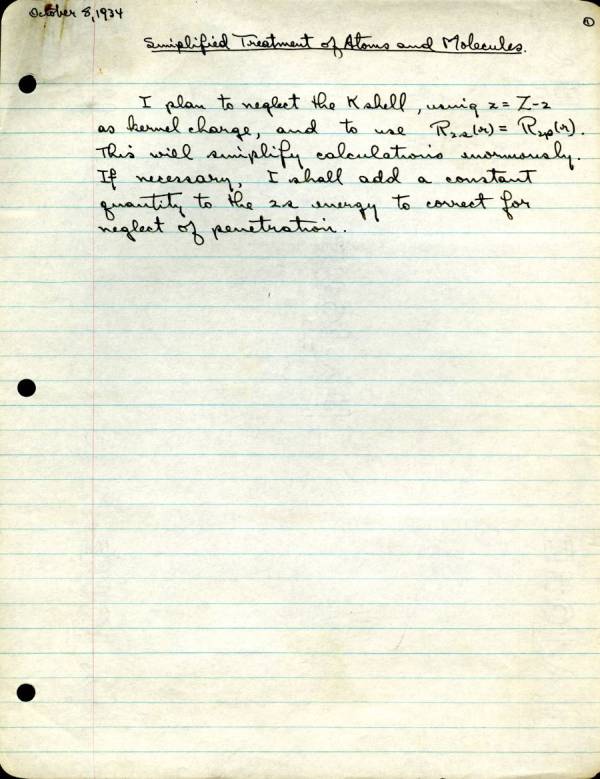 October 8, 1934
①
Simplified Treatment of Atoms and Molecules.
I plan to neglect the K shell, using z = Z-2
as kernel charge, and to use R₂ₛ(r) = R₂ₚ(r).
This will simplify calculations enormously.
If necessary, I shall add a constant
quantity to the 2s energy to correct for
neglect of penetration.